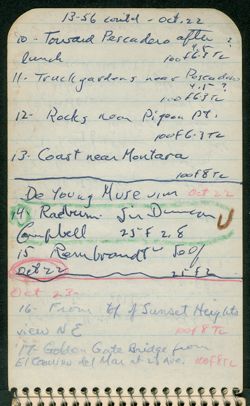 13-56 cont'd - Oct. 22
10- Toward Pescadero after ?
lunch 100 f 6.3 Tc
11- Truck gardens near Pescadero
4.5 ?
100 f 6.3 Tc
12- Rocks near Pigeon Pt.
100 f 6.3 Tc
13- Coast near Montara
100 f 8 Tc
De Young Museum Oct 22
14 Raeburn Sir Duncan
Campbell 25 f 2.8
15 Rembrandt
Oct 22
Oct 23
16- From top of Sunset Heights
view N E 100 f 8 Tc
17- Golden Gate Bridge from
El Camino del Mar at 29 Ave. 100 f 8 Tc